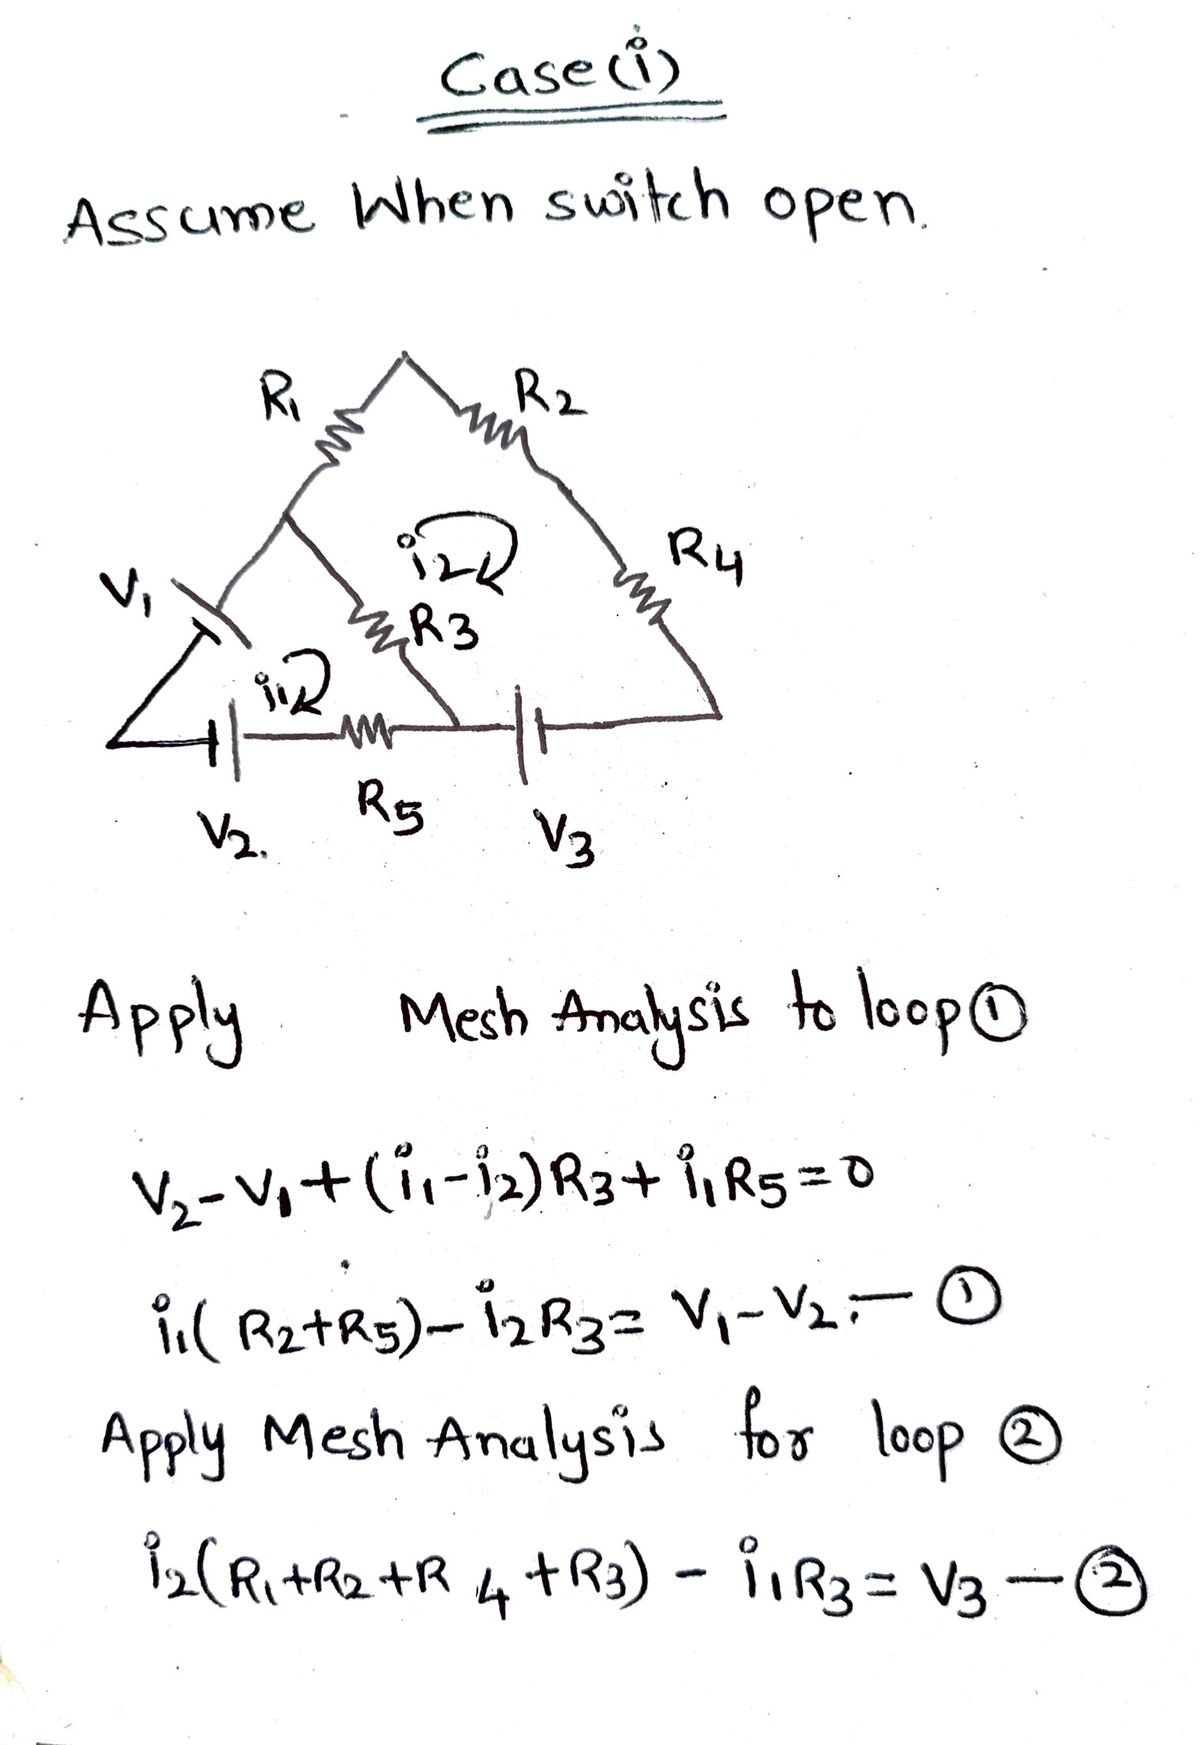 Case (i)
Assume When switch open.
R1
R2
i2
R4
V1
R3
i1
R5
V2.
V3
Apply Mesh Analysis to loop ①
V2-V1+(i1-i2)R3+i1R5=0
i1(R2+R5)-i2R3=V1-V2.-①
Apply Mesh Analysis for loop ②
i2(R1+R2+R4+R3)-i1R3=V3-②